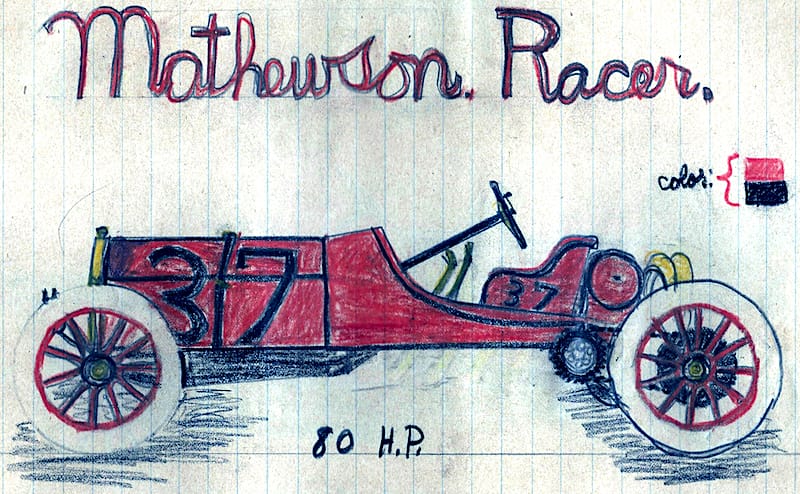 Mathewson. Racer.
color:
37
37
80 H.P.